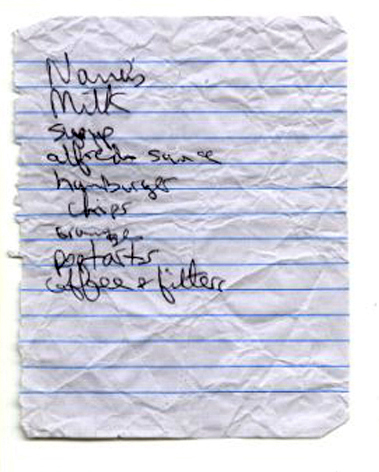 Milk
alfredo sauce
hamburger
chips
orange
poptarts
coffee + filters